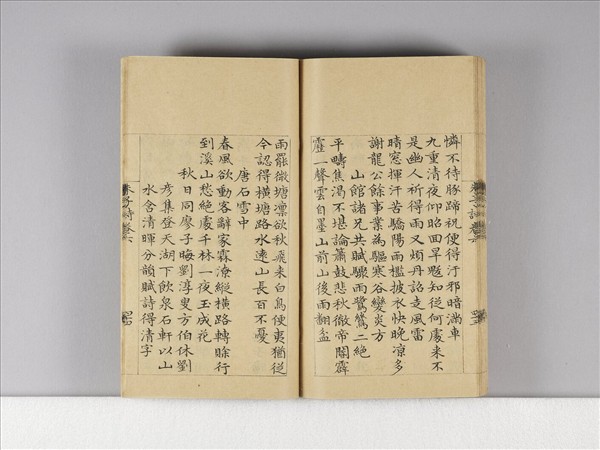 憐不待豚蹄祝便得汙邪暗滿車
九重清夜仰昭回旱魃知從何處來不
是幽人祈得雨又煩丹詔走風雷
晴窓揮汗苦驕陽雨檻披衣快晚凉多
謝龍公餘事業為驅寒谷變炎方
山館諸兄共賦驟雨鷺鷥二絶
平疇焦渴不堪論簫鼓悲秋徹帝閽霹
靂一聲雲自墨山前山後雨翻盆
雨罷微塘凛欲秋飛来白鳥便夷猶從
今認得横塘路水遶山長百不憂
唐石雪中
春風欲動客辭家霖潦縱横路轉賖行
到溪山愁絶處千林一夜玉成花
秋日同廖子晦劉淳叟方伯休劉
彦集登天湖下飲泉石軒以山
水含清暉分韻賦詩得清字